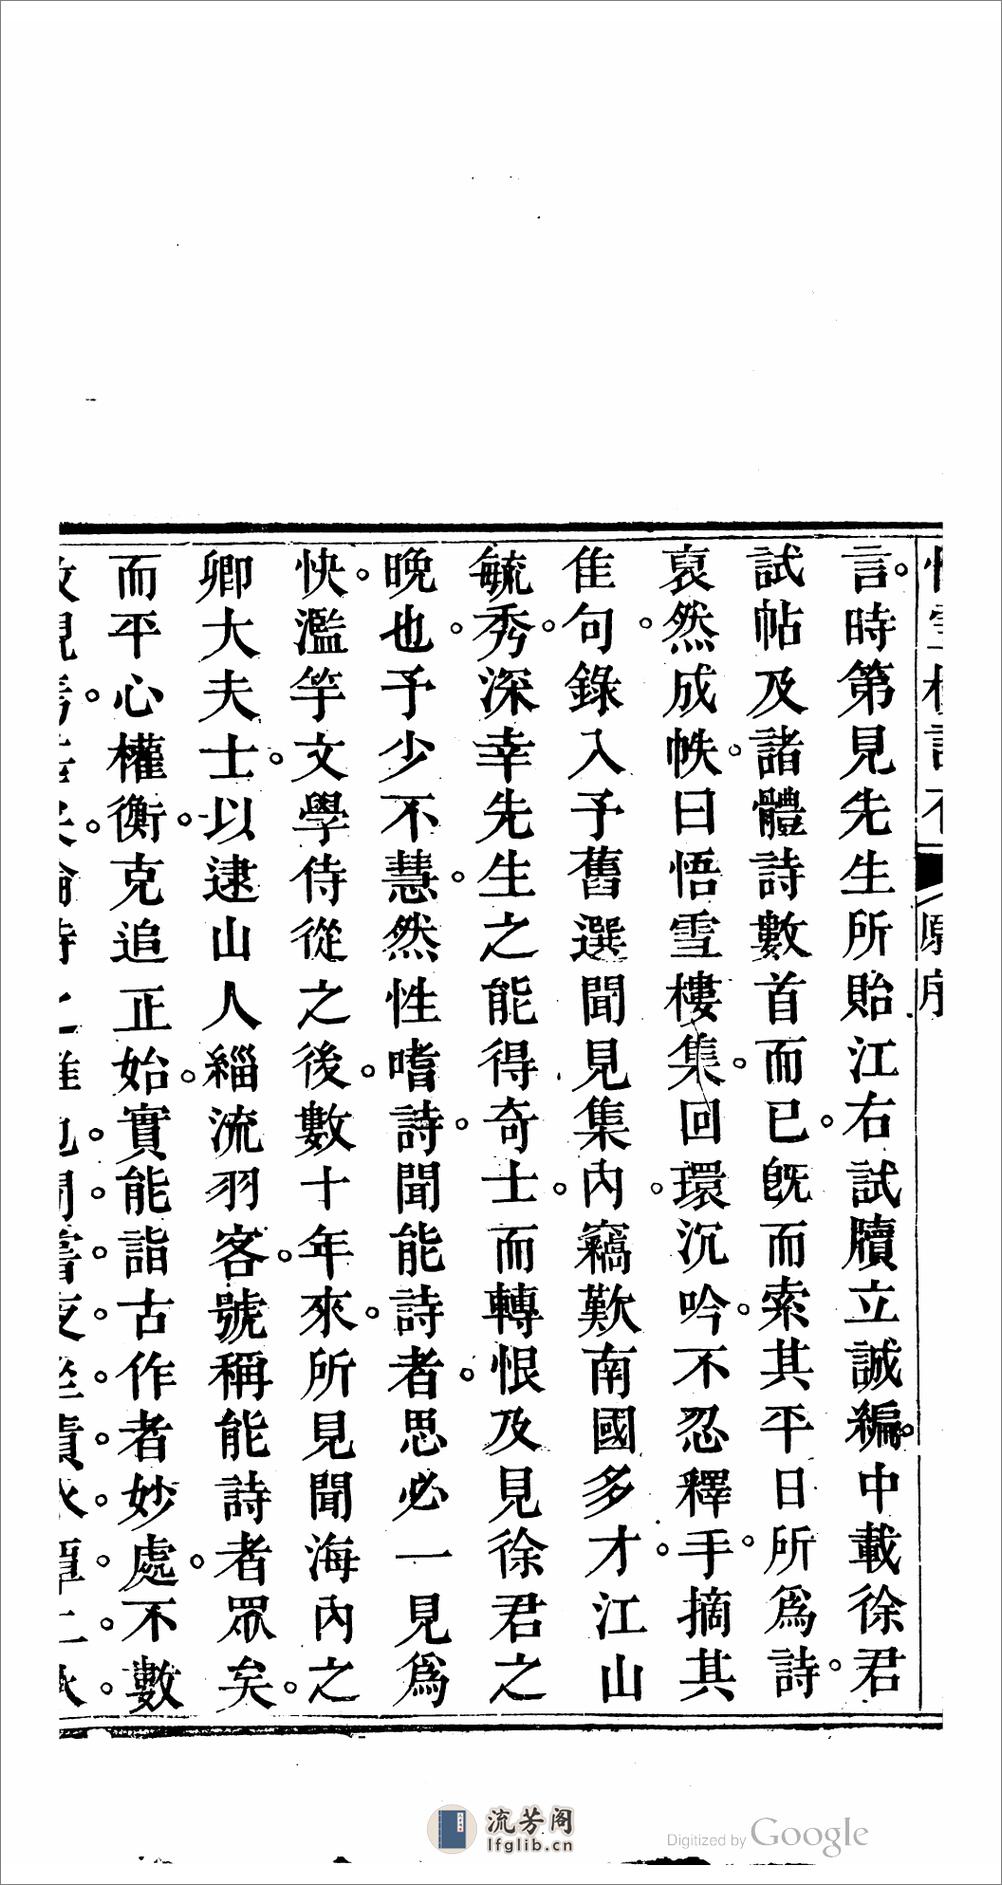 言。時第見先生所貽江右試牘立誠編。中載徐君
試帖及諸體詩數首而已。旣而索其平日所爲詩。
裒然成帙。曰悟雪樓集。回環沉吟。不忍釋手。摘其
佳句。錄入予舊選聞見集內。竊歎南國多才。江山
毓秀。深幸先生之能得奇士。而轉恨及見徐君之
晚也。予少不慧。然性嗜詩。聞能詩者。思必一見爲
快。濫竽文學侍從之後。數十年來。所見聞海內之
卿大夫士。以逮山人緇流羽客。號稱能詩者眾矣。
而平心權衡。克追正始。實能詣古作者妙處。不數
流芳阁
lfglib.cn
Digitized by Google